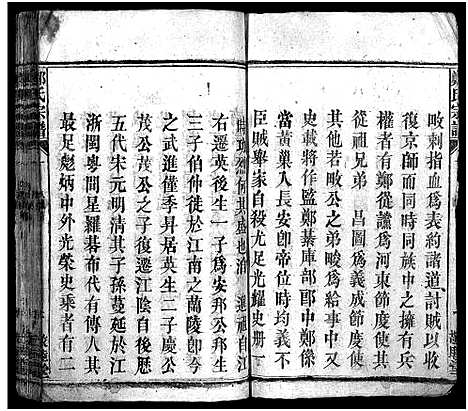 鄭氏宗譜
畋刺指血爲表約諸道討賊以收
復京師而同時同族中之擁有兵
權者有鄭從讜爲河東節度使
從祖兄弟 昌圖爲義成節度使
其他若畋公之弟畯爲給事中以
史載將作監鄭綦庫部郎中鄭係
當黃巢入長安卽帝位時均義不
臣賊舉家自殺尤足光耀史册
時功烈何其盛也洎 進祖自江
右遷英後生一子爲安邦公邦生
三子伯仲徙於江南之蘭陵卽今
之武進僅季昇居英生二子慶公
茂公茂公之子復遷江陰自後歷
五代宋元明清其子孫蔓延於江
浙閩粤間星羅碁布代有傳人其
最足彪炳中外光榮史乘者有二
鄭氏宗譜